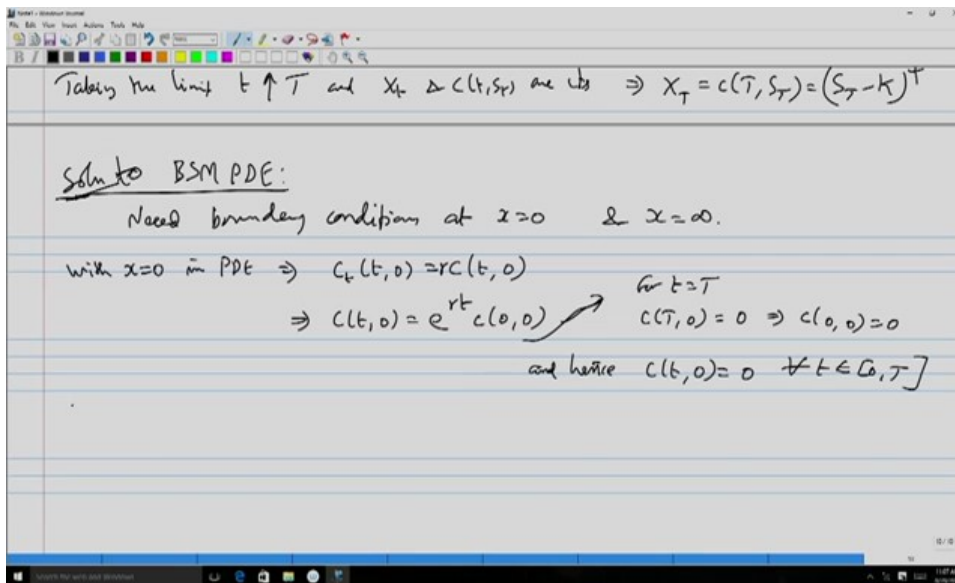 Note1 - Windows Journal
File Edit View Insert Actions Tools Help
B I
Taking the limit t ↑ T and X_t & C(t,S_t) are cts ⇒ X_T = C(T, S_T) = (S_T - K)^+
Soln to BSM PDE:
Need boundary conditions at x=0 & x=∞.
with x=0 in PDE ⇒ C_t(t,0) = rC(t,0)
For t=T
⇒ C(t,0) = e^{rt} c(0,0) C(T,0) = 0 ⇒ c(0,0)=0
and hence C(t,0)=0 ∀ t ∈ [0,T]
Search the web and Windows